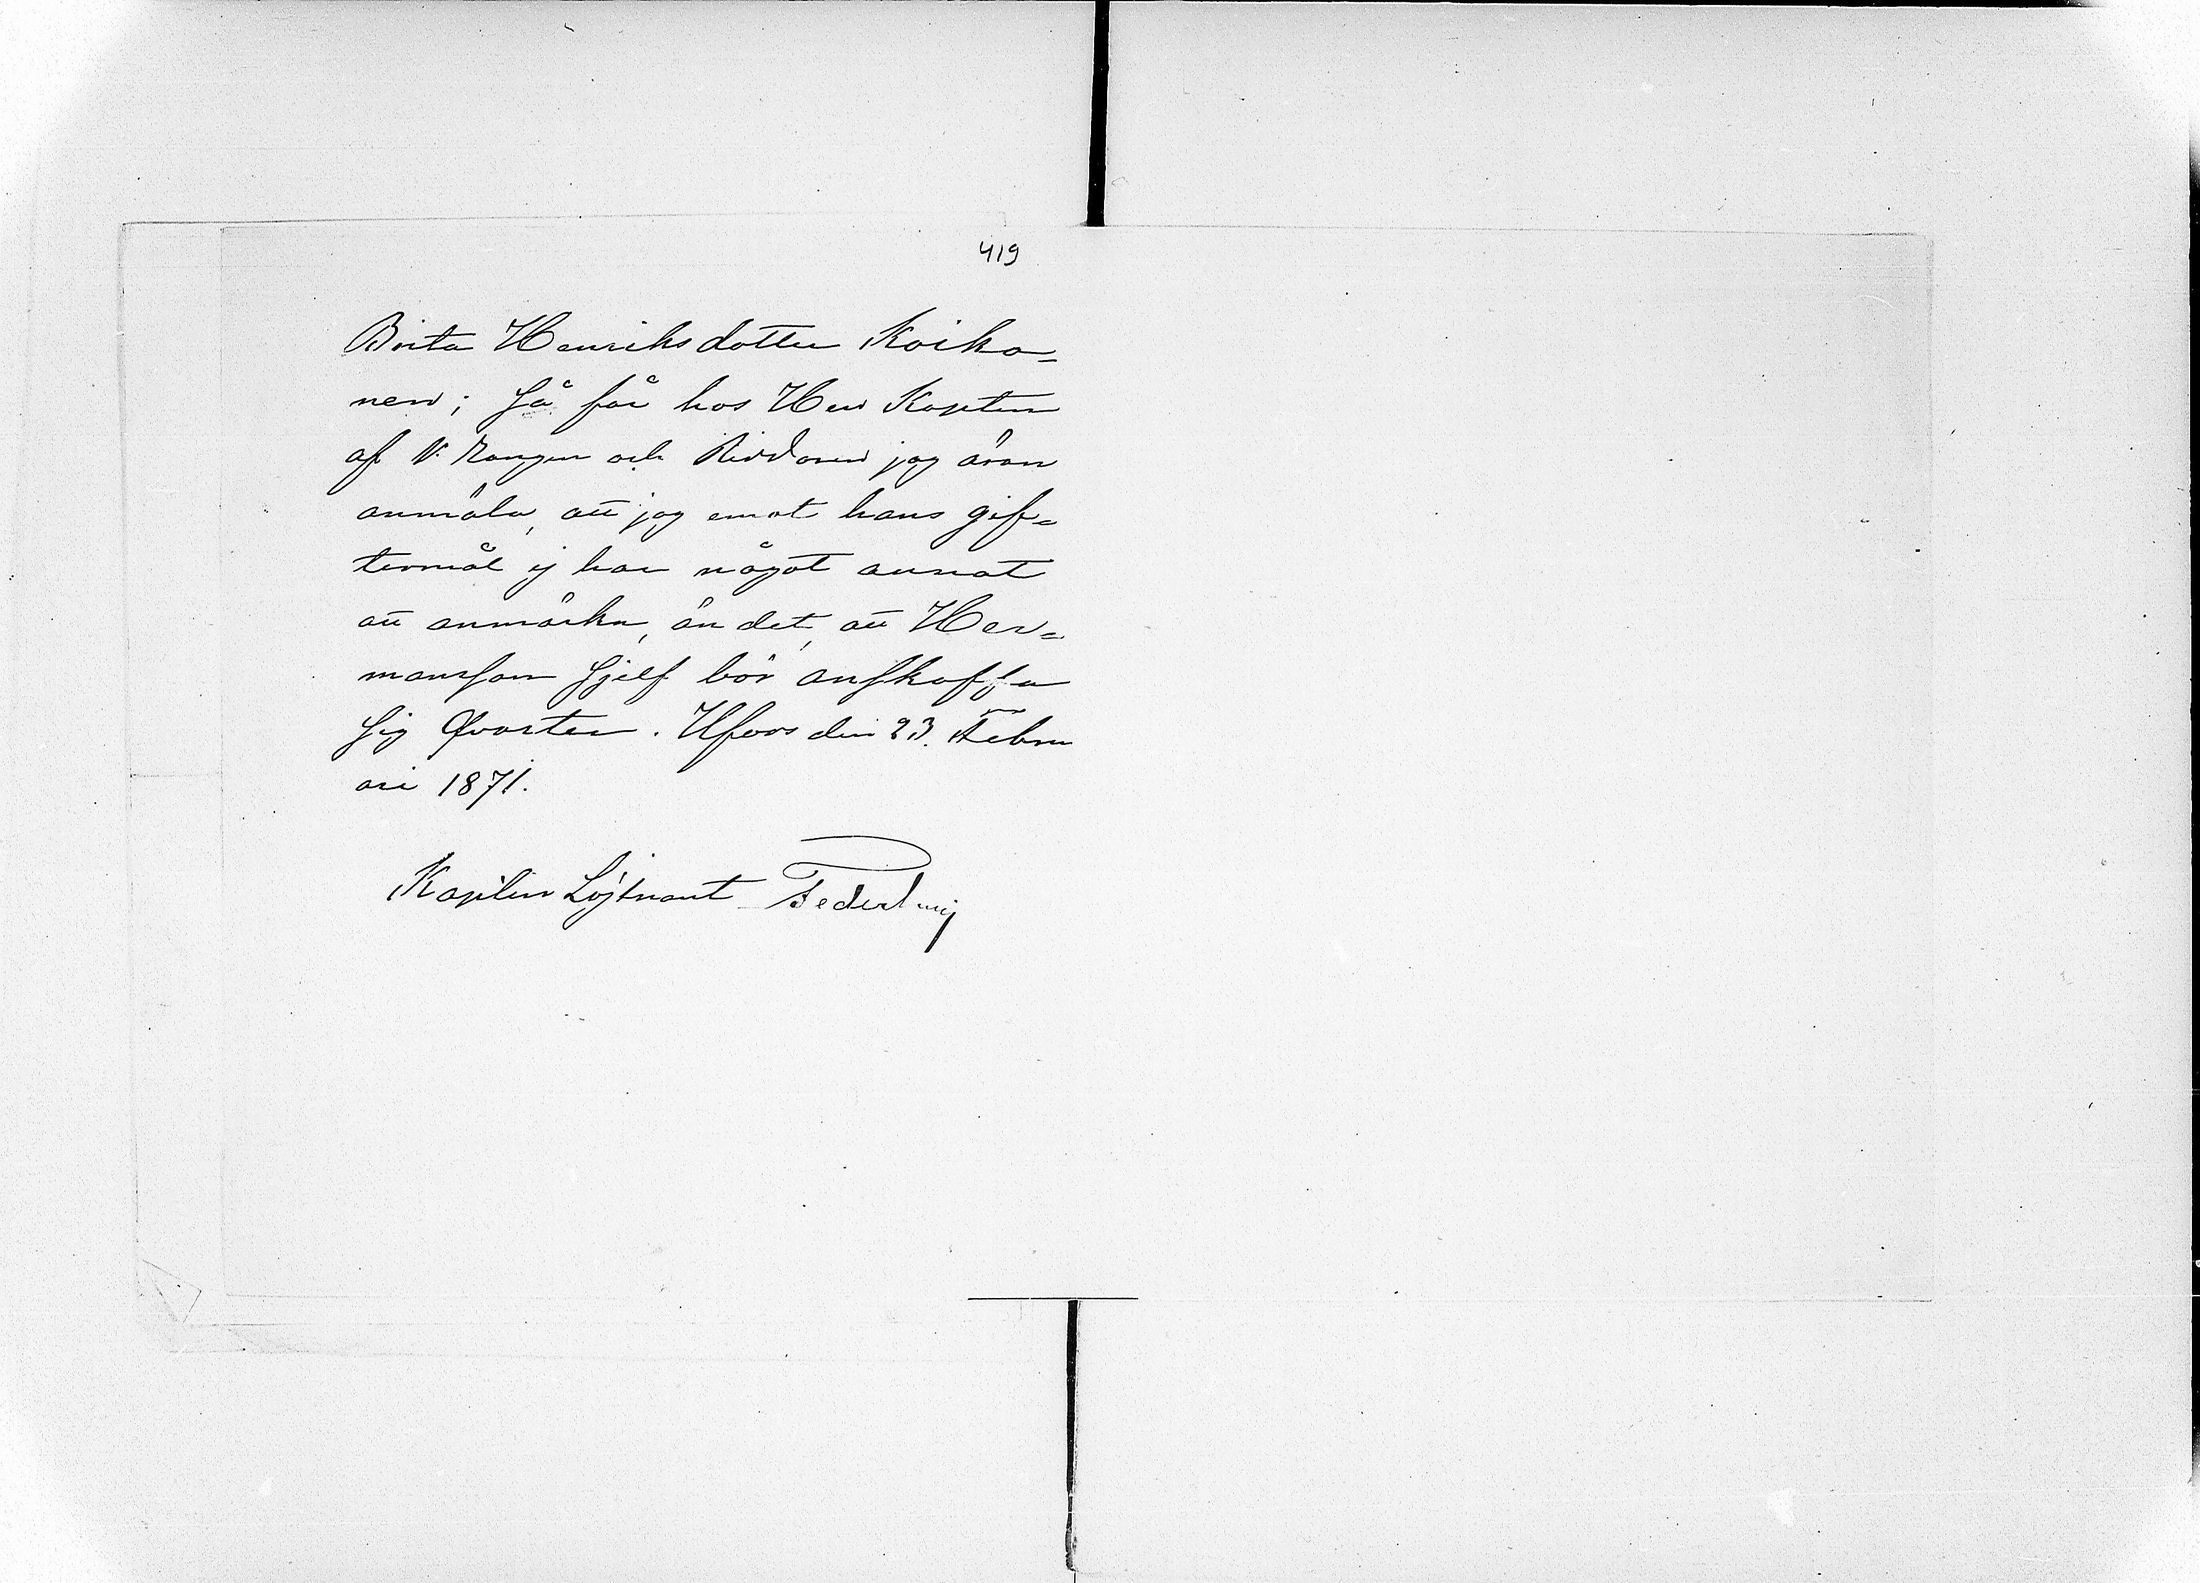 419
Brita Henriksdotter Koiko=
nen; Så får hos Herr Kapten
af 1. Rangen och Riddaren jag äran
anmäla, att jag emot hans gif=
termål ej har något annat
att anmärka, än det, att Her=
mansson sjelf bör anskaffa
sig Qvarter. Hfors den 23. Febru
ari 1871.
Kapten Löjtnant